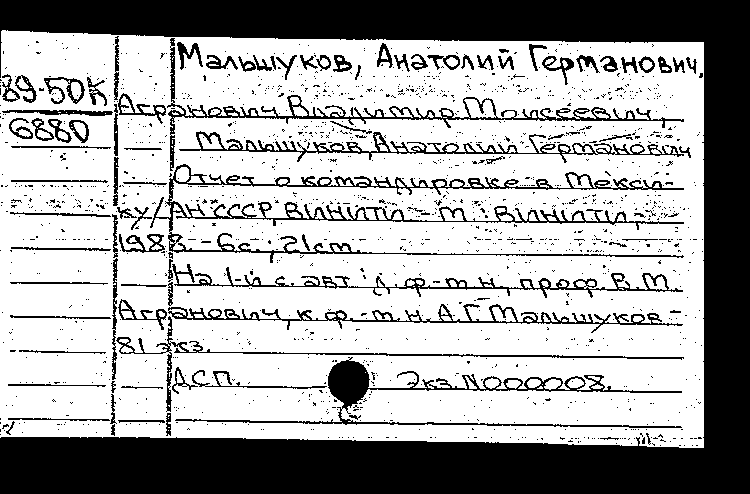 Мальшуков, Анатолий Германович.
89-50К
6880
Агранович, Владимир Моисеевич,
Мальшуков, Анатолий Германович
Отчет о командировке в Мекси-
ку / АН СССР, ВИНИТИ. - М. : ВИНИТИ,
1988. - 6с. ; 21см.
На 1-й с. авт.: д. ф.-м. н., проф. В.М.
Агранович, к. ф.-м. н. А.Г. Мальшуков -
81 экз.
ДСП. Экз. N000008.